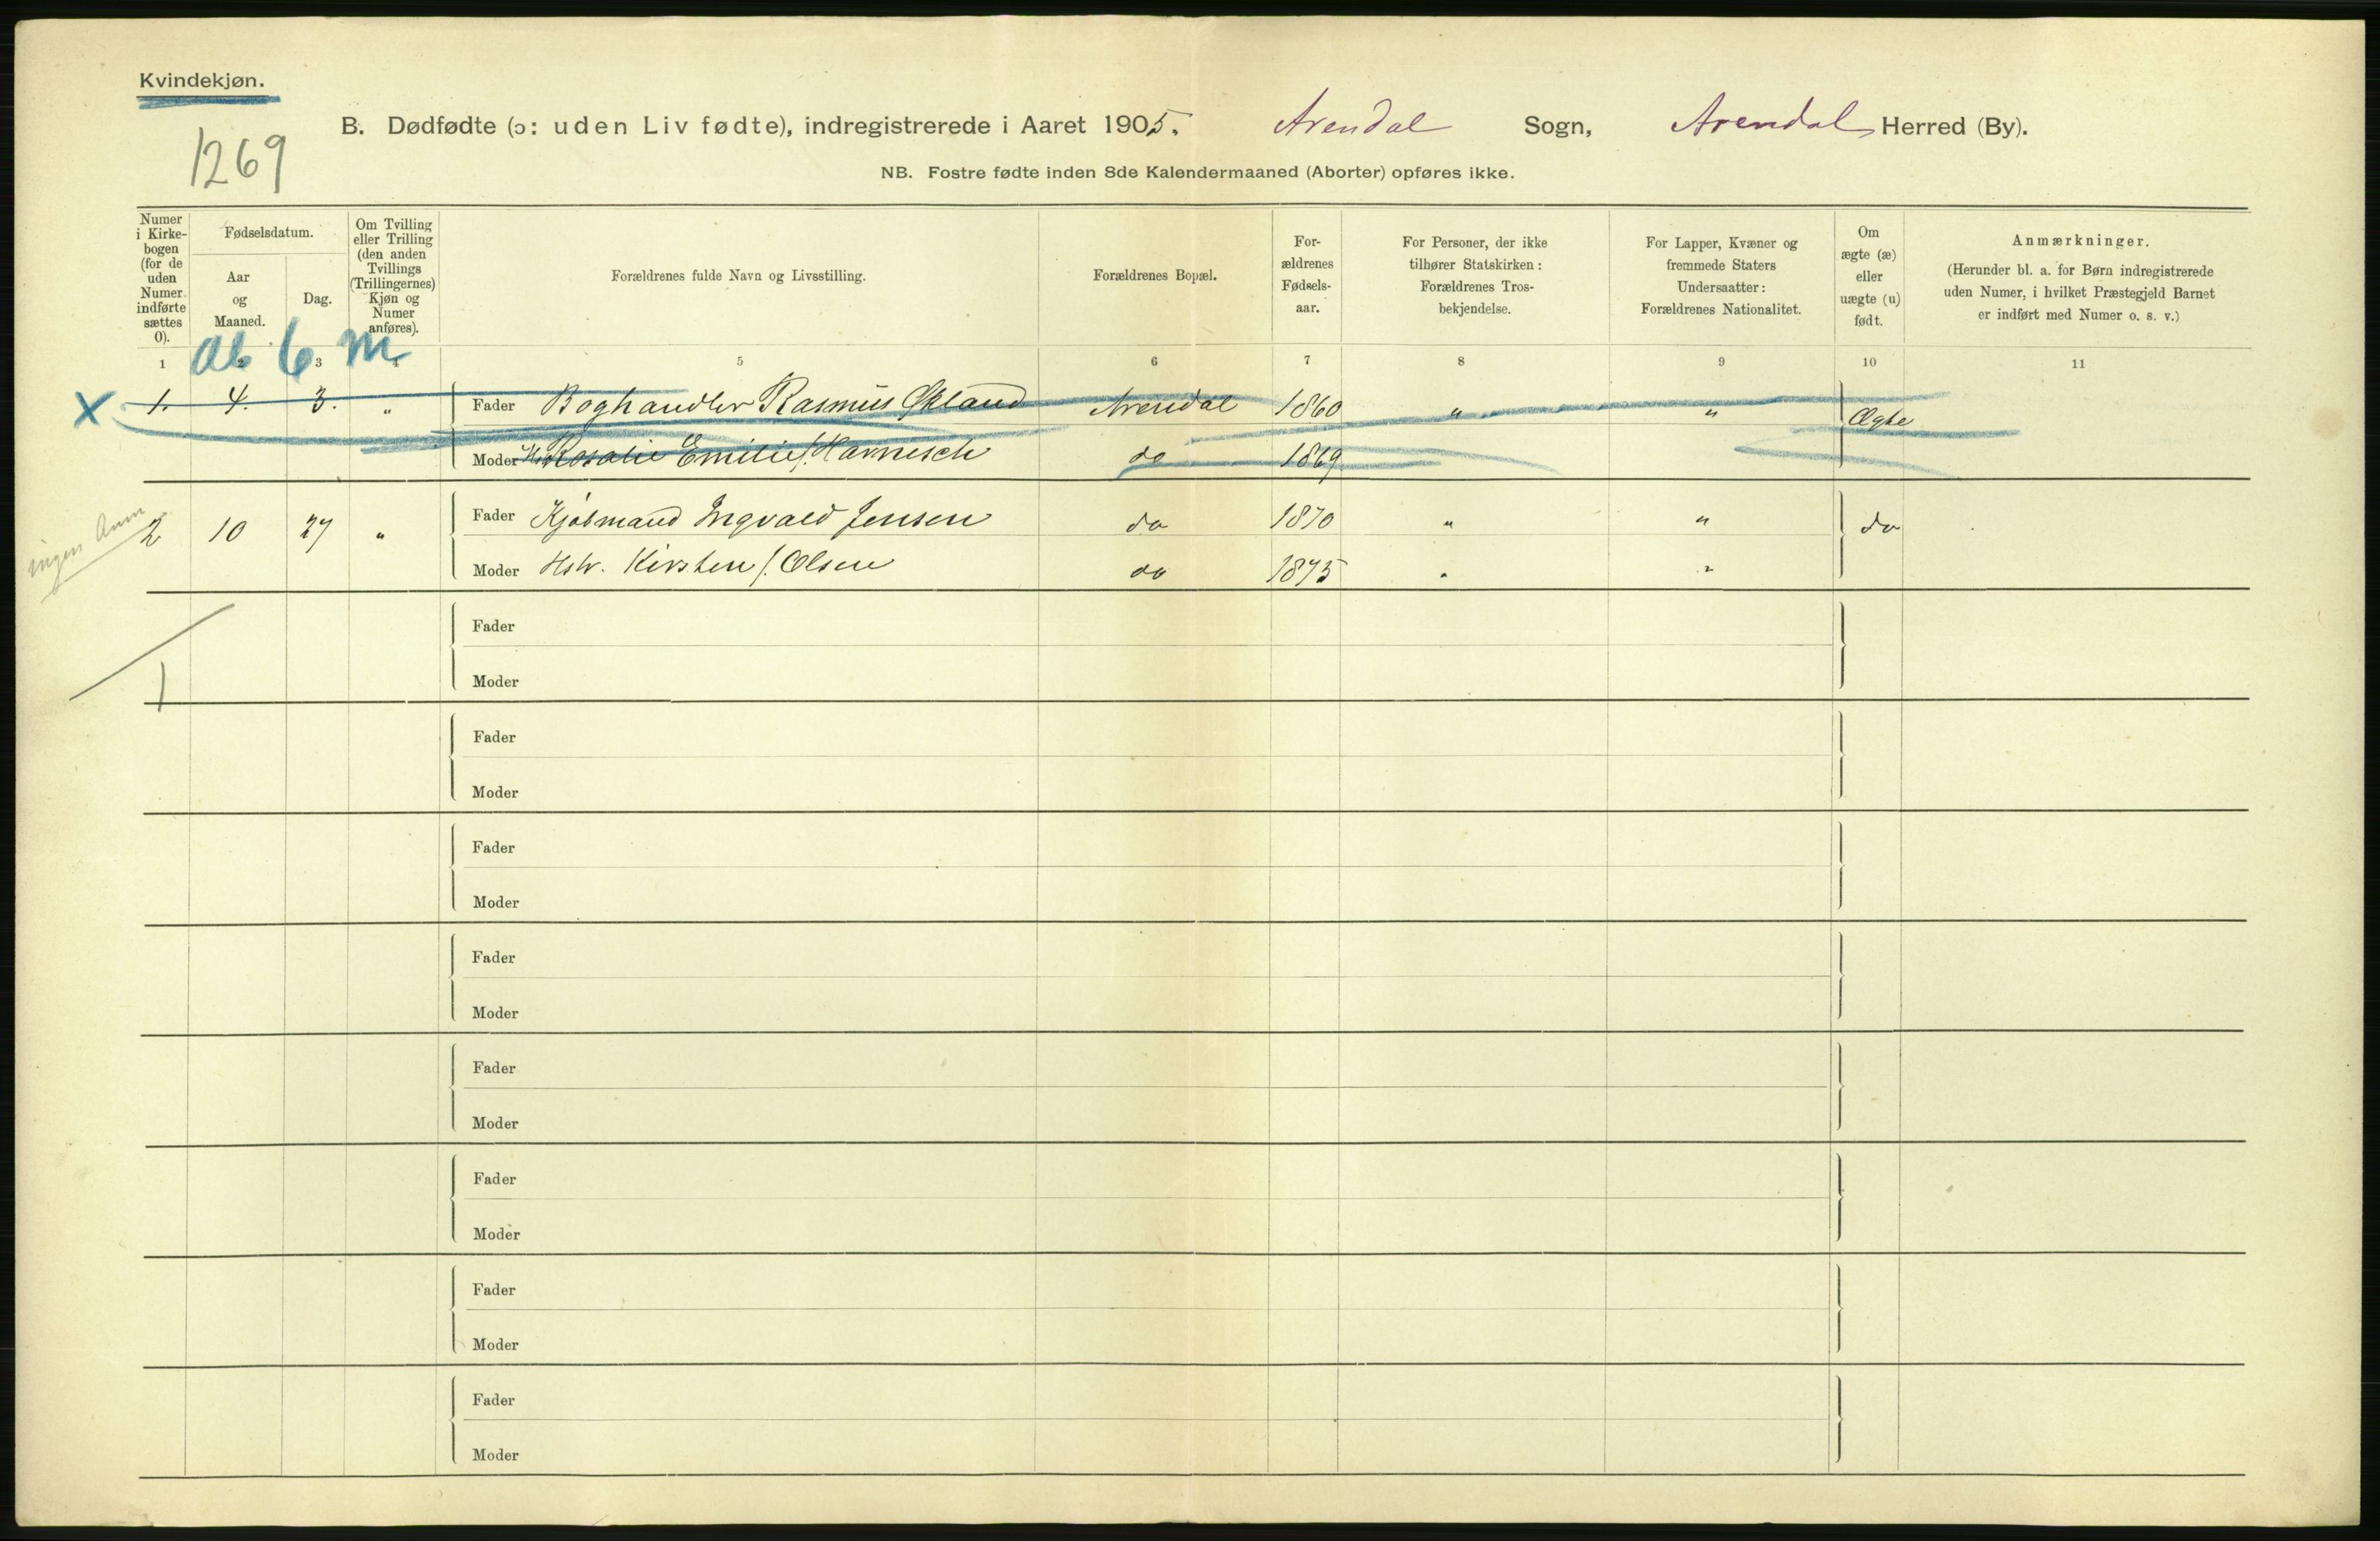 Kvindekjøn.
1269
B. Dødfødte (ɔ: uden Liv fødte), indregistrerede i Aaret 1905. Arendal Sogn, Arendal Herred (By).
NB. Fostre fødte inden 8de Kalendermaaned (Aborter) opføres ikke.
Numer i Kirkebogen (for de uden Numer indførte sættes 0).
Fødselsdatum.
Aar og Maaned.
Dag.
Om Tvilling eller Trilling (den anden Tvillings (Trillingernes) Kjøn og Numer anføres).
Forældrenes fulde Navn og Livsstilling.
Forældrenes Bopæl.
Forældrenes Fødselsaar.
For Personer, der ikke tilhører Statskirken: Forældrenes Trosbekjendelse.
For Lapper, Kvæner og fremmede Staters Undersaatter: Forældrenes Nationalitet.
Om ægte (æ) eller uægte (u) født.
Anmærkninger.
(Herunder bl. a. for Børn indregistrerede uden Numer, i hvilket Præstegjeld Barnet er indført med Numer o. s. v.)
Ab 6 m
1 2 3 4 5 6 7 8 9 10 11
X 1. 4. 3. " Fader Boghandler Rasmus Økland Arendal 1860 " " Ægte
Moder Rosalie Emilie f. Harnisch do 1869
ingen Anm
2 10 27 " Fader Kjøbmand Ingvald Jensen do 1870 " " do
Moder Hstr. Kirsten f. Olsen do 1875 " "
Fader
1 Moder
Fader
Moder
Fader
Moder
Fader
Moder
Fader
Moder
Fader
Moder
Fader
Moder
Fader
Moder